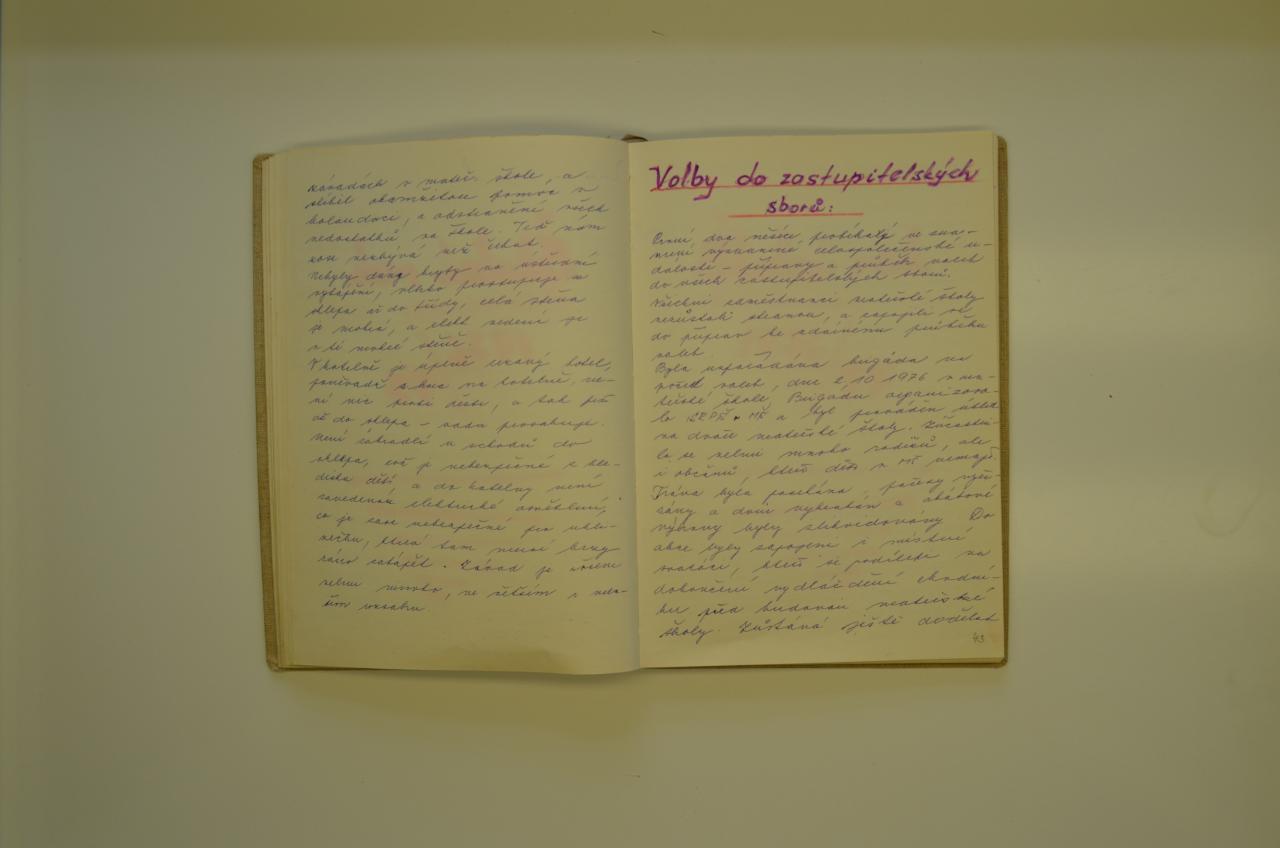 závadách v mateř. škole, a
slíbil okamžitou pomoc v
kolaudaci, a odstranění všech
nedostatků na škole. Teď nám
nezbývá než čekat.
Nebyly dány kryty na ústřední
vytápění, vlhko prostupuje ze
sklepa až do třídy, celá stěna
je mokrá, a elekt. vedení je
v té mokré stěně.
V kotelně je úplně
kotel,
poněvadž
na kotelně, ne-
ní nic proti dešti, a tak
až do sklepa - voda
není zábradlí u schodů do
sklepa, což je nebezpečné z hle-
diska dětí, a do kotelny není
zavedeno elektrické osvětlení,
co je zase nebezpečné pro
která tam musí brzy
ráno zatápět. Závad je ovšem
velmi mnoho, ve větším i men-
ším rozsahu.
Volby do zastupitelských
sborů:
První dva měsíce probíhaly ve zna-
mení významné celospolečenské u-
dálosti - přípravy a průběh voleb
do všech zastupitelských sborů.
Všichni zaměstnanci mateřské školy
nezůstali stranou, a zapojili se
do příprav ke zdárnému průběhu
voleb.
Byla uspořádána brigáda na
počest voleb, dne 2.10 1976 v ma-
teřské škole. Brigádu organizova-
lo SRPŠ a MŠ a byl prováděn úklid
na dvoře mateřské školy. Zúčastni-
lo se velmi mnoho rodičů, ale
i občanů, kteří děti v MŠ nemají.
Tráva byla posekána,
a
výkopy byly zlikvidovány. Do
akce byli zapojeni i místní
kteří se podíleli na
dokončení vydláždění chodní-
ku před budovou mateřské
školy. Zůstává ještě dodělat
43